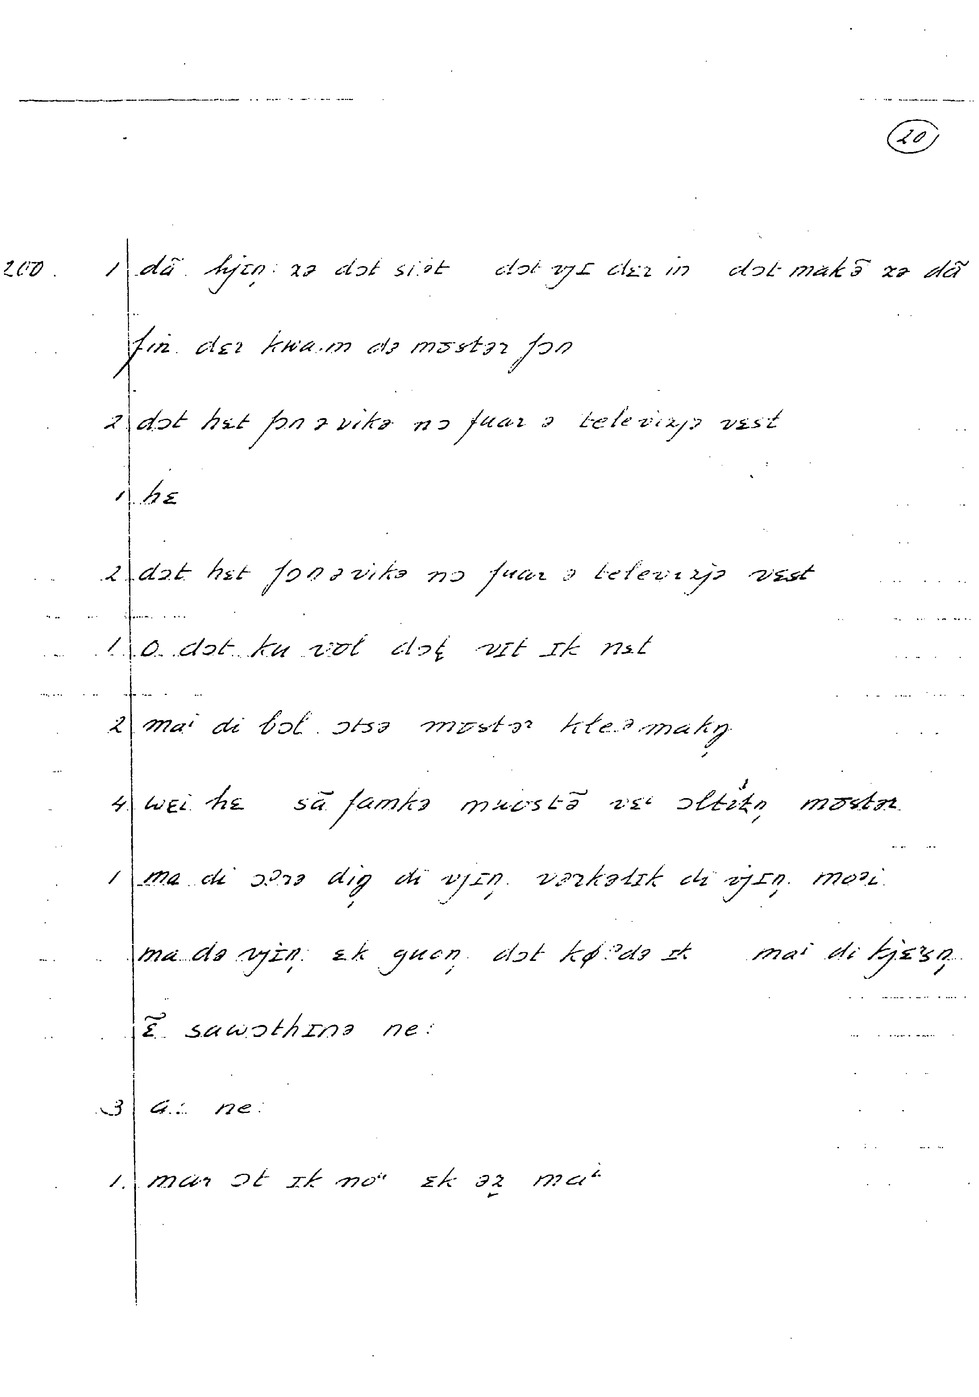 20
200. 1 dã hjɪn̩: zə dɔt si:ət dɔt vjɪ dɛr in dɔt makə̃ zə dã
fin. dɛr kwa:m də mʊstər fɔn
2 dɔt hɛt fɔn əvikə nɔ fuar ə televizjə vɛst
1 hɛ
2 dɔt hɛt fɔn əvikə nɔ fuar ə televɪzjə vɛst
1 o dɔt ku vʊl dɔt̬ vɪt ɪk nɛt
2 maⁱ di bɔl ɔtsə mʊstər kleəmakŋ̩
4. wɛi hɛ sã famkə muʊstə̃ vɛⁱ ɔltitn̩ mʊstər
1 ma di ɔərə diŋ̩ di vjɪn̩. vərkəlɪk di vjɪn̩. moəi
ma də vjɪn̩: ɛk guən̩ dɔt køədə ɪk maⁱ di kjɛʒn̩
ɛ̃ sawɔthɪnə ne:
3 a: ne:
1. mar ɔt ɪk noᵘ ɛk əz̬ maⁱ